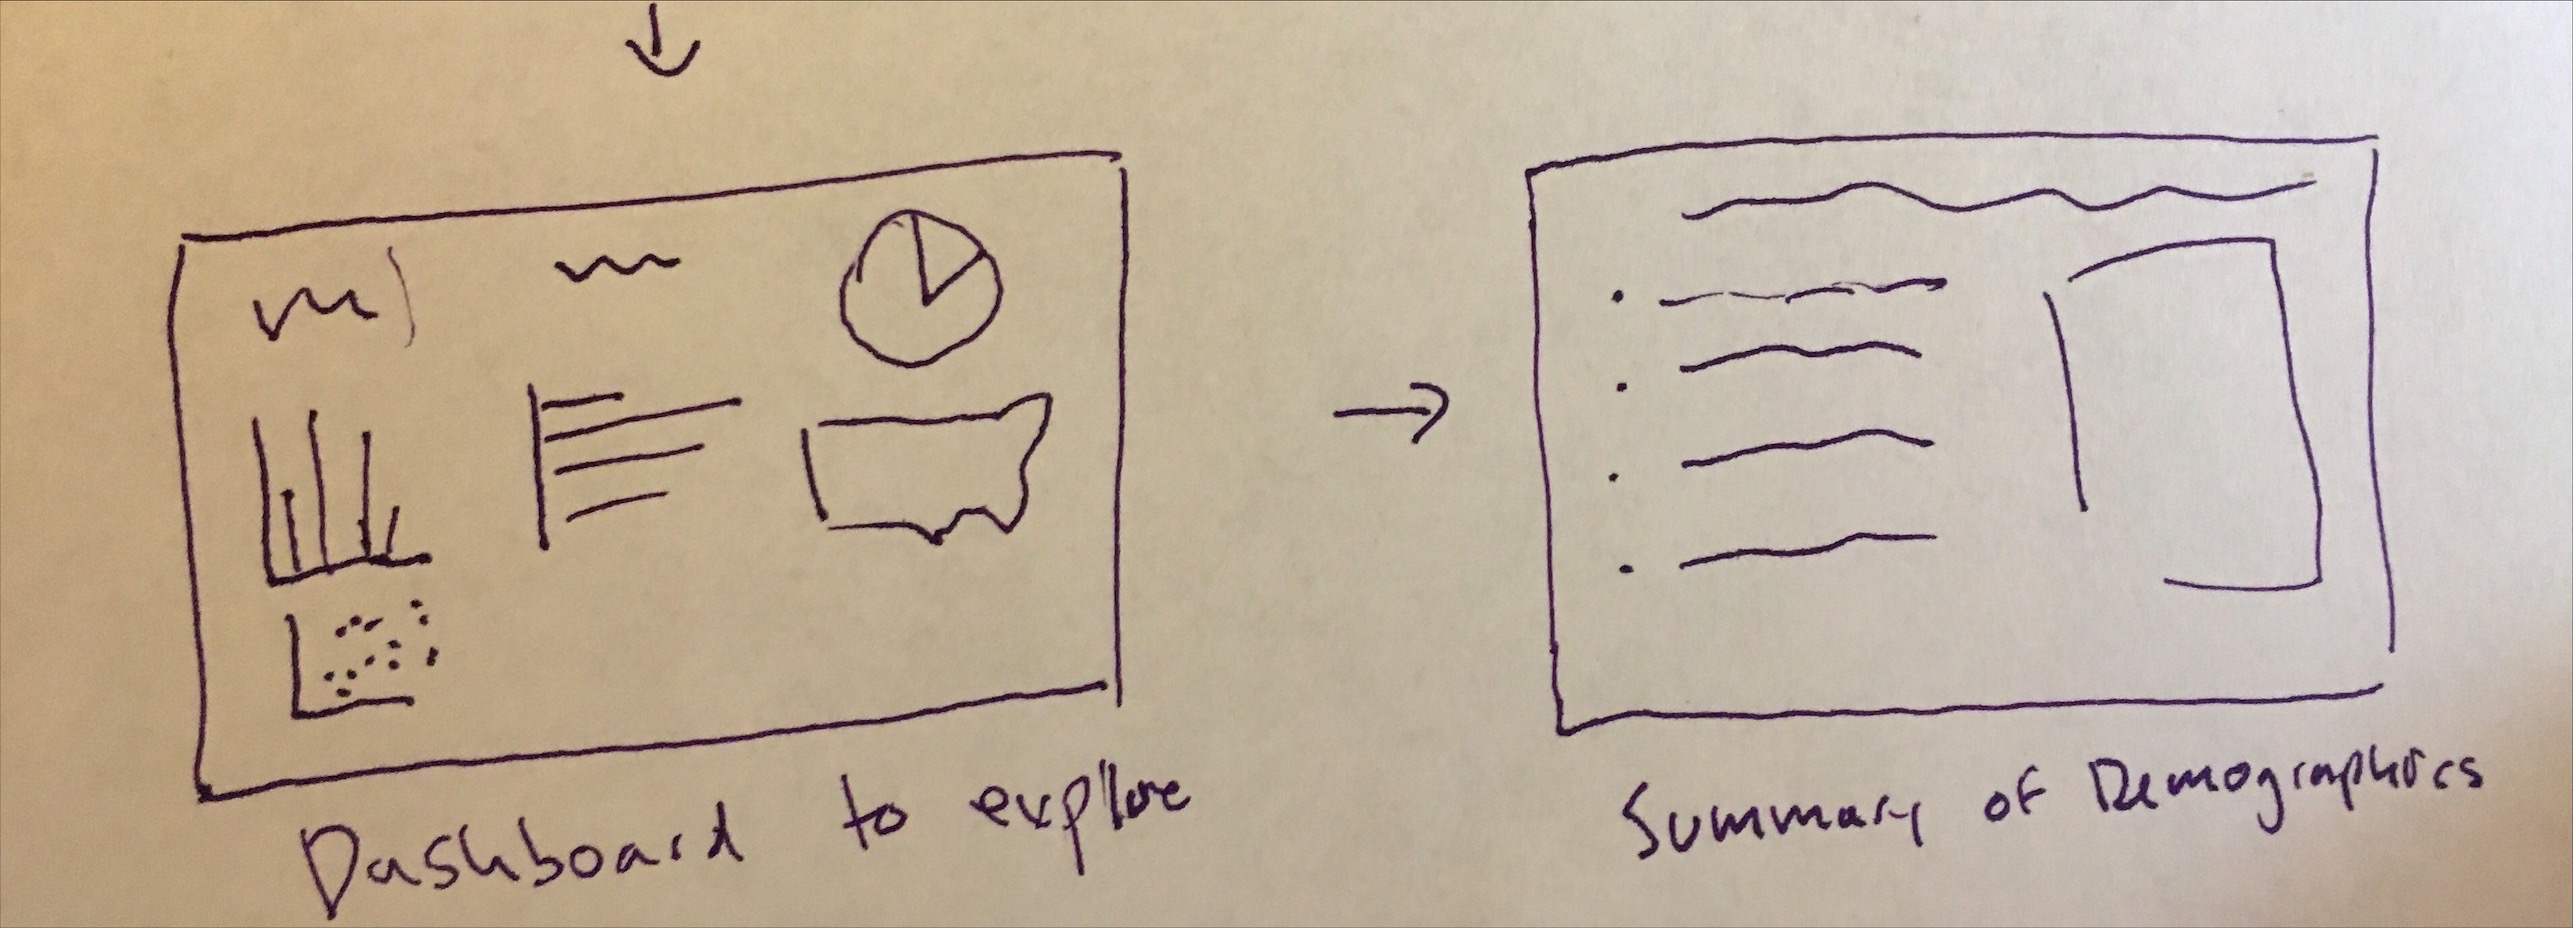 Dashboard to explore
Summary of Demographics